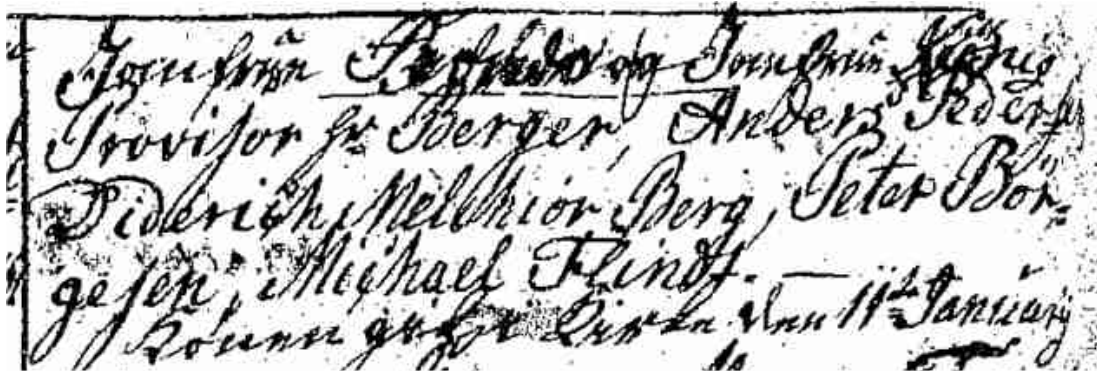 Jomfrue og Jomfrue König
Provisor hr. Berger, Anders Peders:
Diderich Melchior Berg, Peter Bör-
gesen, Michael Flindt. —
Konen Kirke den 11te Januarij